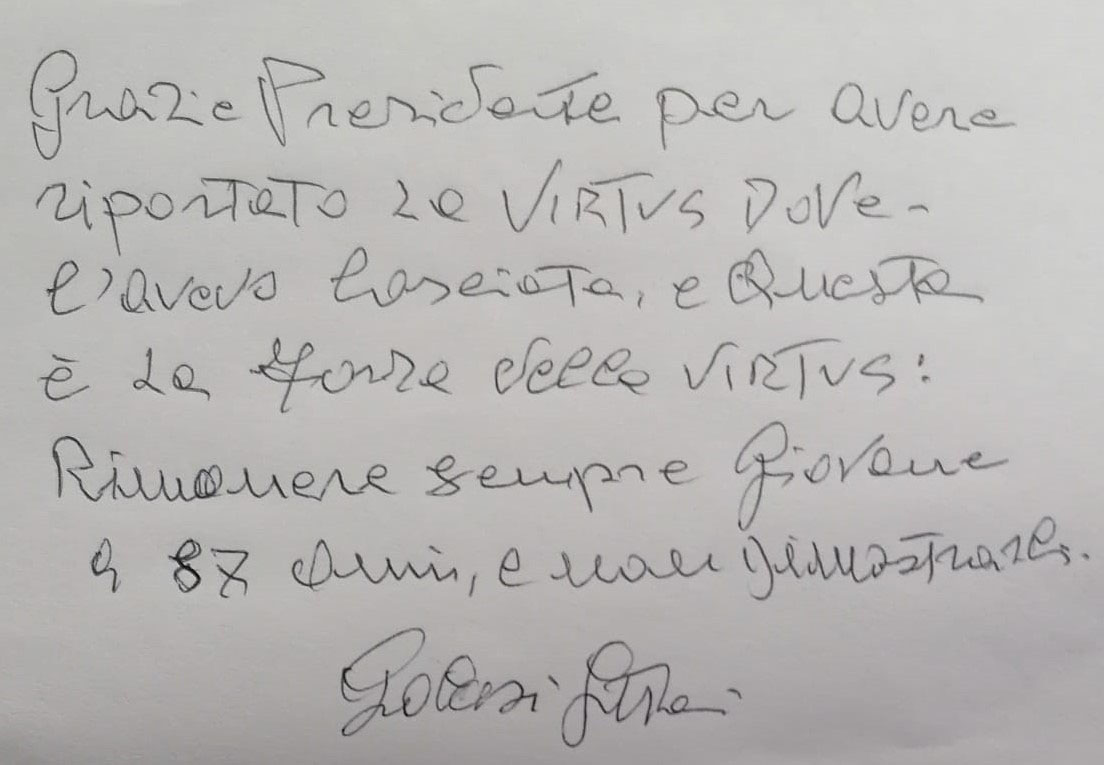 Grazie Presidente per avere
riportato la VIRTUS DOVe
l'avevo lasciata, e Questa
è La forza della VIRTUS:
Rimanere sempre Giovane
a 87 anni, e non dimostrarli.